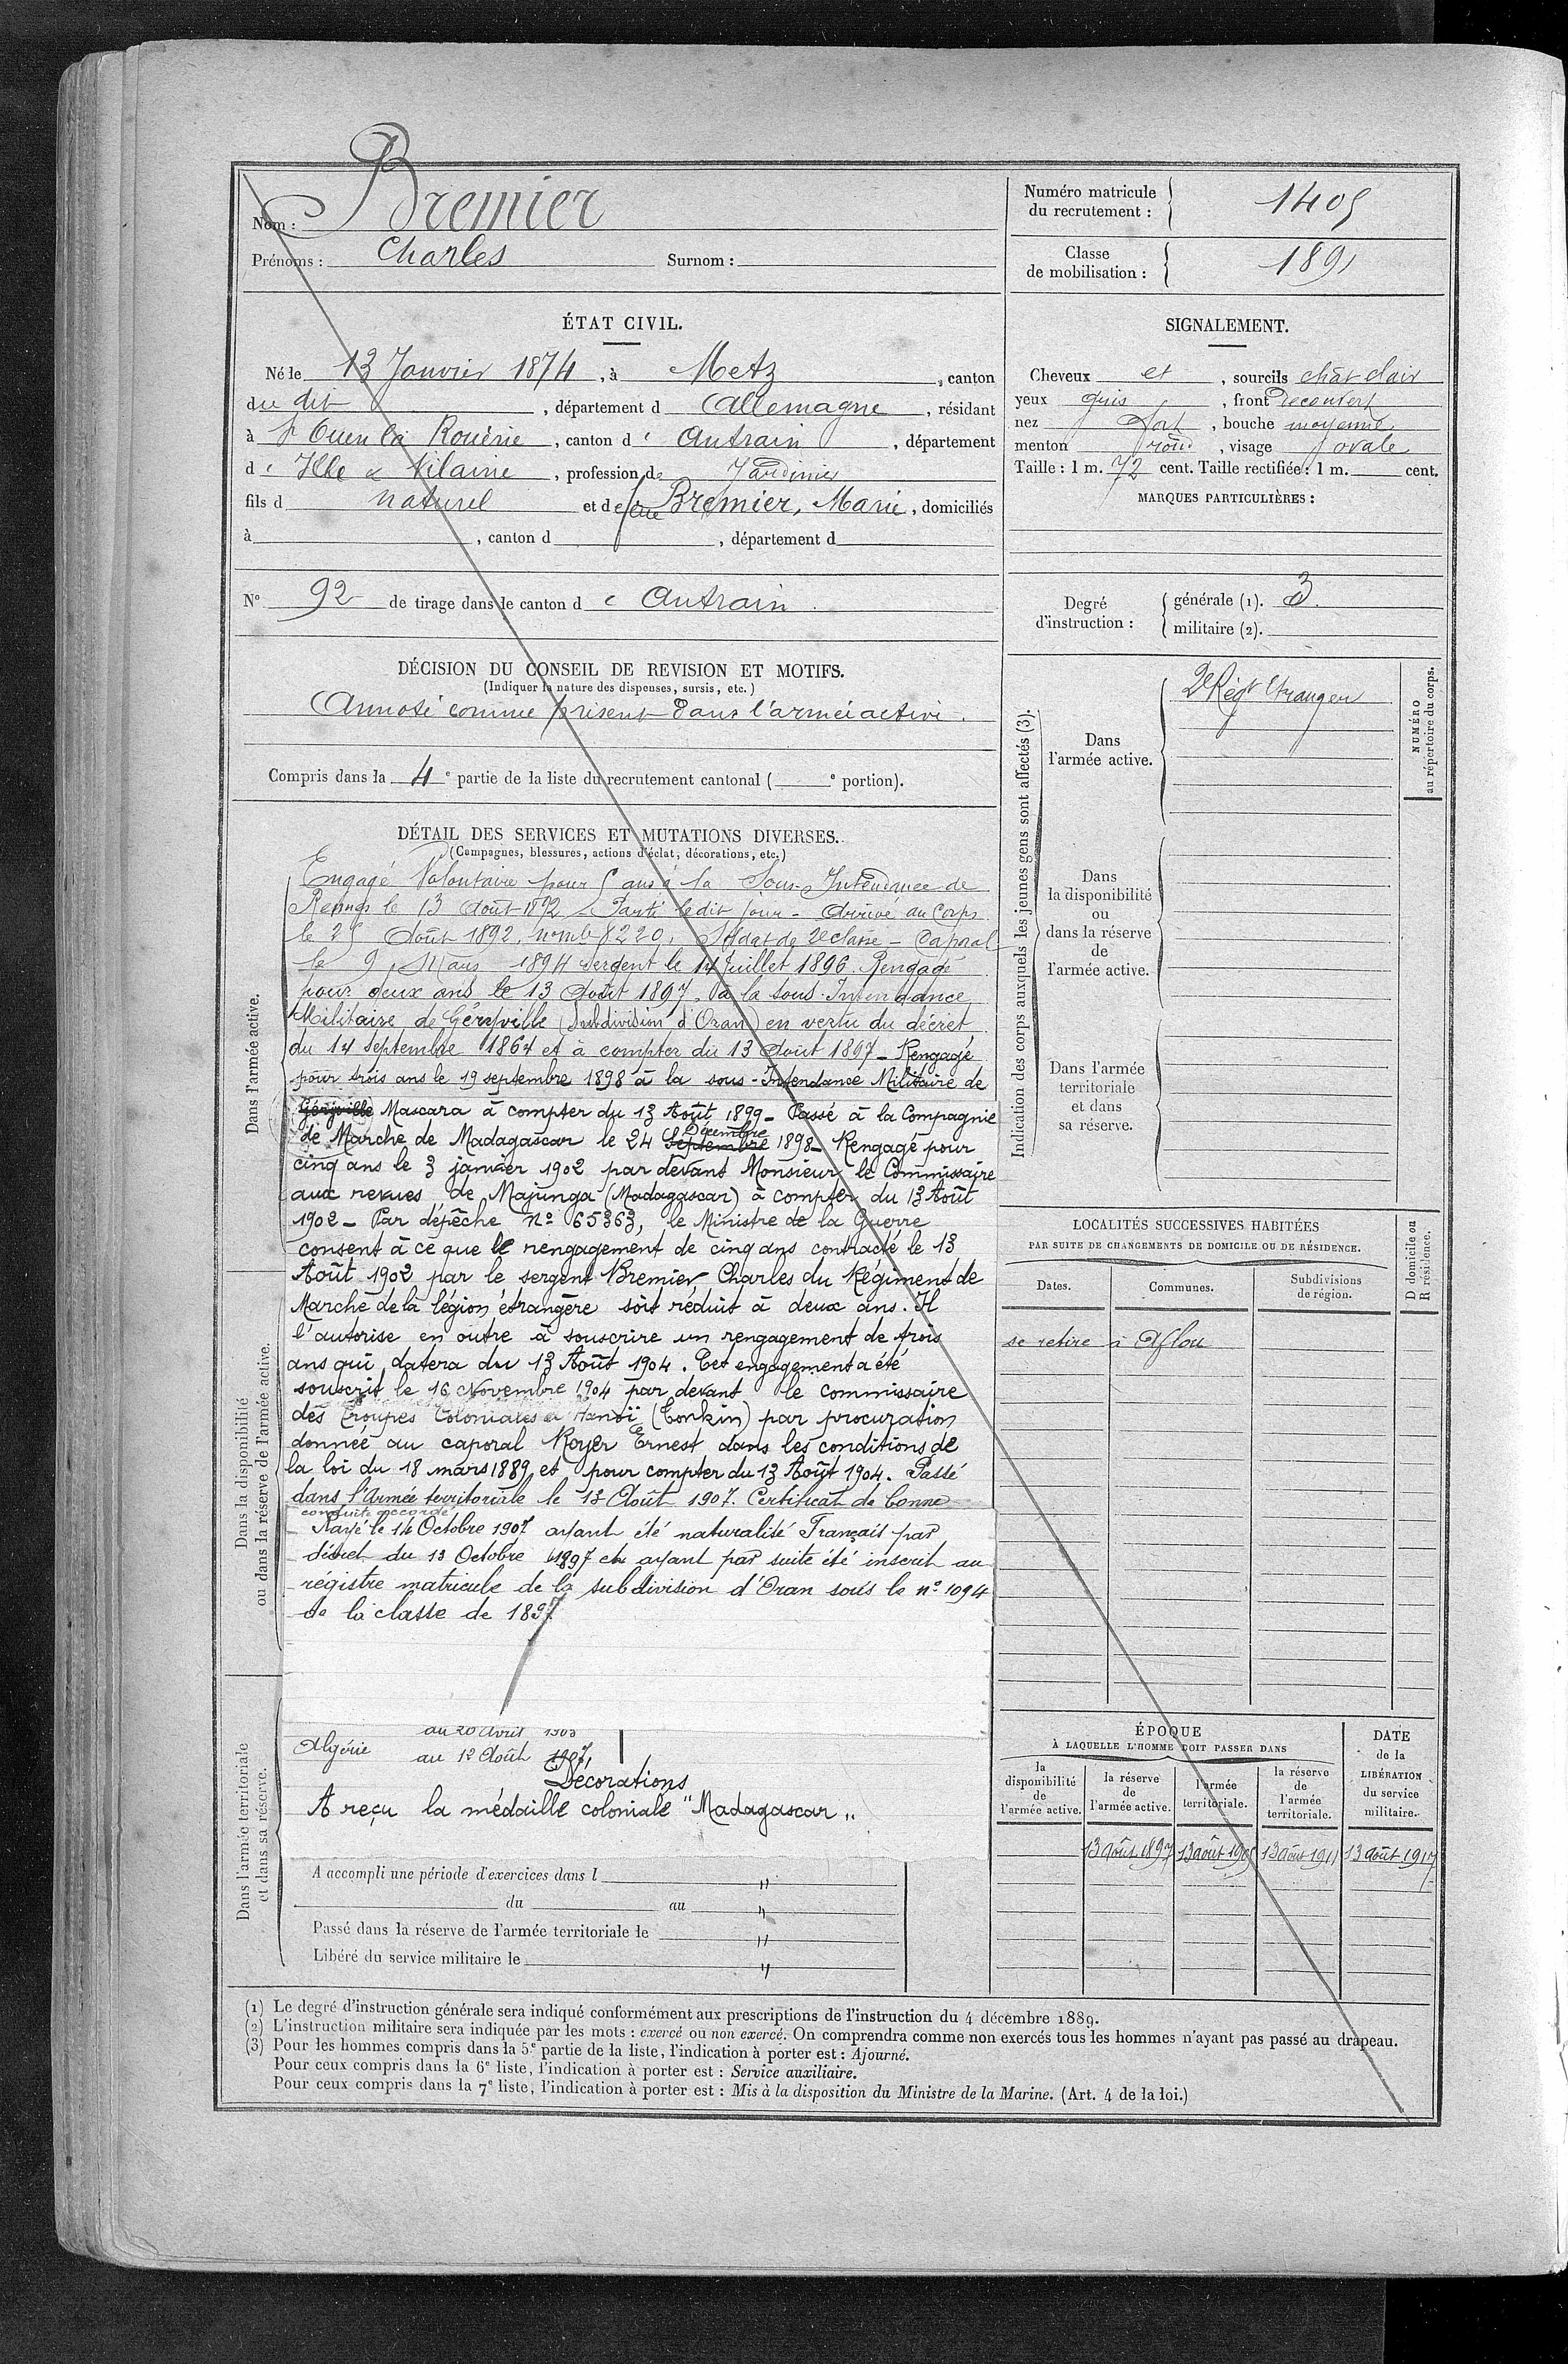 Nom : Bremier
Prénoms : Charles Surnom :
Numéro matricule du recrutement : 1405
Classe de mobilisation : 1891
ÉTAT CIVIL.
Né le 13 Janvier 1874, à Metz, canton
du dit, département d Allemagne, résidant
à St Ouen la Rouërie, canton d' Antrain, département
d' Ille & Vilaine, profession de Jardinier
fils d naturel et de feue Bremier, Marie, domiciliés
à , canton d , département d
N° 92 de tirage dans le canton de Antrain.
DÉCISION DU CONSEIL DE REVISION ET MOTIFS.
(Indiquer la nature des dispenses, sursis, etc.)
Annoté comme présent dans l'armée active.
Compris dans la 4e partie de la liste du recrutement cantonal ( e portion).
SIGNALEMENT.
Cheveux et , sourcils chât clair
yeux gris , front découvert
nez fort , bouche moyenne
menton rond , visage ovale
Taille : 1 m. 72 cent. Taille rectifiée : 1 m. cent.
MARQUES PARTICULIÈRES :
Degré d'instruction :
générale (1). 3.
militaire (2).
DÉTAIL DES SERVICES ET MUTATIONS DIVERSES.
(Campagnes, blessures, actions d'éclat, décorations, etc.)
Dans l'armée active.
Engagé Volontaire pour 5 ans à la Sous-Intendance de
Rennes le 13 Août 1892 - Parti ledit jour - Arrivé au Corps
le 25 Août 1892, n° mle 8220, Soldat de 2e classe - Caporal
le 9 Mars 1894 sergent le 14 Juillet 1896. Rengagé
pour deux ans le 13 Août 1897, à la sous-Intendance
Militaire de Géryville (Subdivision d'Oran) en vertu du décret
du 14 septembre 1864 et à compter du 13 Août 1897 - Rengagé
pour trois ans le 19 septembre 1898 à la sous-Intendance Militaire de
Géryville Mascara à compter du 13 Août 1899 - Passé à la Compagnie
de Marche de Madagascar le 24 septembre Décembre 1898 - Rengagé pour
cinq ans le 3 janvier 1902 par devant Monsieur le Commissaire
aux revues de Majunga (Madagascar) à compter du 13 Août
1902 - Par dépêche n° 65363, le Ministre de la Guerre
consent à ce que le rengagement de cinq ans contracté le 13
Août 1902 par le sergent Bremier Charles du Régiment de
Marche de la légion étrangère soit réduit à deux ans. Il
l'autorise en outre à souscrire un rengagement de trois
ans qui datera du 13 Août 1904. Cet engagement a été
souscrit le 16 Novembre 1904 par devant le commissaire
des Troupes Coloniales à Hanoï (Tonkin) par procuration
donnée au caporal Royer Ernest dans les conditions de
la loi du 18 mars 1889 et pour compter du 13 Août 1904. Passé
dans l'Armée territoriale le 13 Août 1907. Certificat de bonne
conduite accordé
Rayé le 14 Octobre 1907 ayant été naturalisé Français par
décret du 13 Octobre 1897 et ayant par suite été inscrit au
régistre matricule de la subdivision d'Oran sous le n° 1094
de la classe de 1897
Dans la disponibilité
ou dans la réserve de l'armée active.
Dans l'armée territoriale
et dans sa réserve.
au 20 Avril 1903
Algérie au 12 Août 1907,
Décorations
A reçu la médaille coloniale "Madagascar"
A accompli une période d'exercices dans l "
du au "
Passé dans la réserve de l'armée territoriale le "
Libéré du service militaire le "
Indication des corps auxquels les jeunes gens sont affectés (3).
NUMÉRO
au répertoire du corps.
Dans
l'armée active.
2e Régt Etranger
Dans
la disponibilité
ou
dans la réserve
de
l'armée active.
Dans l'armée
territoriale
et dans
sa réserve.
LOCALITÉS SUCCESSIVES HABITÉES
PAR SUITE DE CHANGEMENTS DE DOMICILE OU DE RÉSIDENCE.
D domicile ou
R résidence.
Dates. Communes. Subdivisions de région.
se retire à Aflou
ÉPOQUE
À LAQUELLE L'HOMME DOIT PASSER DANS
la disponibilité de l'armée active.
la réserve de l'armée active.
l'armée territoriale.
la réserve de l'armée territoriale.
DATE de la LIBÉRATION du service militaire.
13 août 1897 13 août 1905 13 août 1911 13 août 1917
(1) Le degré d'instruction générale sera indiqué conformément aux prescriptions de l'instruction du 4 décembre 1889.
(2) L'instruction militaire sera indiquée par les mots : exercé ou non exercé. On comprendra comme non exercés tous les hommes n'ayant pas passé au drapeau.
(3) Pour les hommes compris dans la 5e partie de la liste, l'indication à porter est : Ajourné.
Pour ceux compris dans la 6e liste, l'indication à porter est : Service auxiliaire.
Pour ceux compris dans la 7e liste, l'indication à porter est : Mis à la disposition du Ministre de la Marine. (Art. 4 de la loi.)